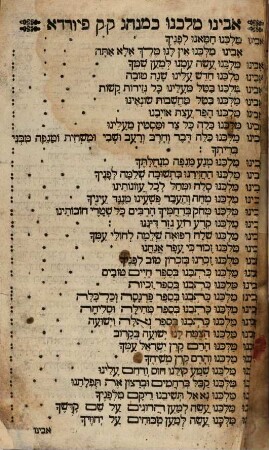 אבינו מלכנו כמנהג קק פיורדא
אבינו מלכנו חטאנו לפניך
אבינו מלכנו אין לנו מלך אלא אתה
אבינו מלכנו עשה עמנו למען שמך
אבינו מלכנו חדש עלינו שנה טובה
אבינו מלכנו בטל מעלינו כל גזירות קשות
אבינו מלכנו בטל מחשבות שונאינו
אבינו מלכנו הפר עצת אויבינו
אבינו מלכנו כלה כל צר ומסטין מעלינו
אבינו מלכנו כלה דבר וחרב ורעב ושבי ומשחית ומגפה מבני
בריתך
אבינו מלכנו מנע מגפה מנחלתך
בינו מלכנו החזירנו בתשובה שלמה לפניך
בינו מלכנו סלח ומחל לכל עונותינו
בינו מלכנו מחה והעבר פשעינו מנגד עיניך
בינו מלכנו מחוק ברחמיך הרבים כל שטרי חובותינו
בינו מלכנו קרע רוע גזר דיננו
בינו מלכנו שלח רפואה שלמה לחולי עמך
בינו מלכנו זכור כי עפר אנחנו
בינו מלכנו זכרנו בזכרון טוב לפניך
בינו מלכנו כתבנו בספר חיים טובים
בינו מלכנו כתבנו בספר זכיות
בינו מלכנו כתבנו בספר פרנסה וכלכלה
בינו מלכנו כתבנו בספר מחילה וסליחה
בינו מלכנו כתבנו בספר גאולה וישועה
בינו מלכנו הצמח לנו ישועה בקרוב
בינו מלכנו והרם קרן ישראל עמך
בינו מלכנו והרם קרן משיחך
בינו מלכנו שמע קולנו חוס ורחם עלינו
בינו מלכנו קבל ברחמים וברצון את תפלתנו
בינו מלכנו נא אל תשיבנו ריקם מלפניך
בינו מלכנו עשה למען הרוגים על שם קדשך
בינו מלכנו עשה למען טבוחים על יחודך
אבינו